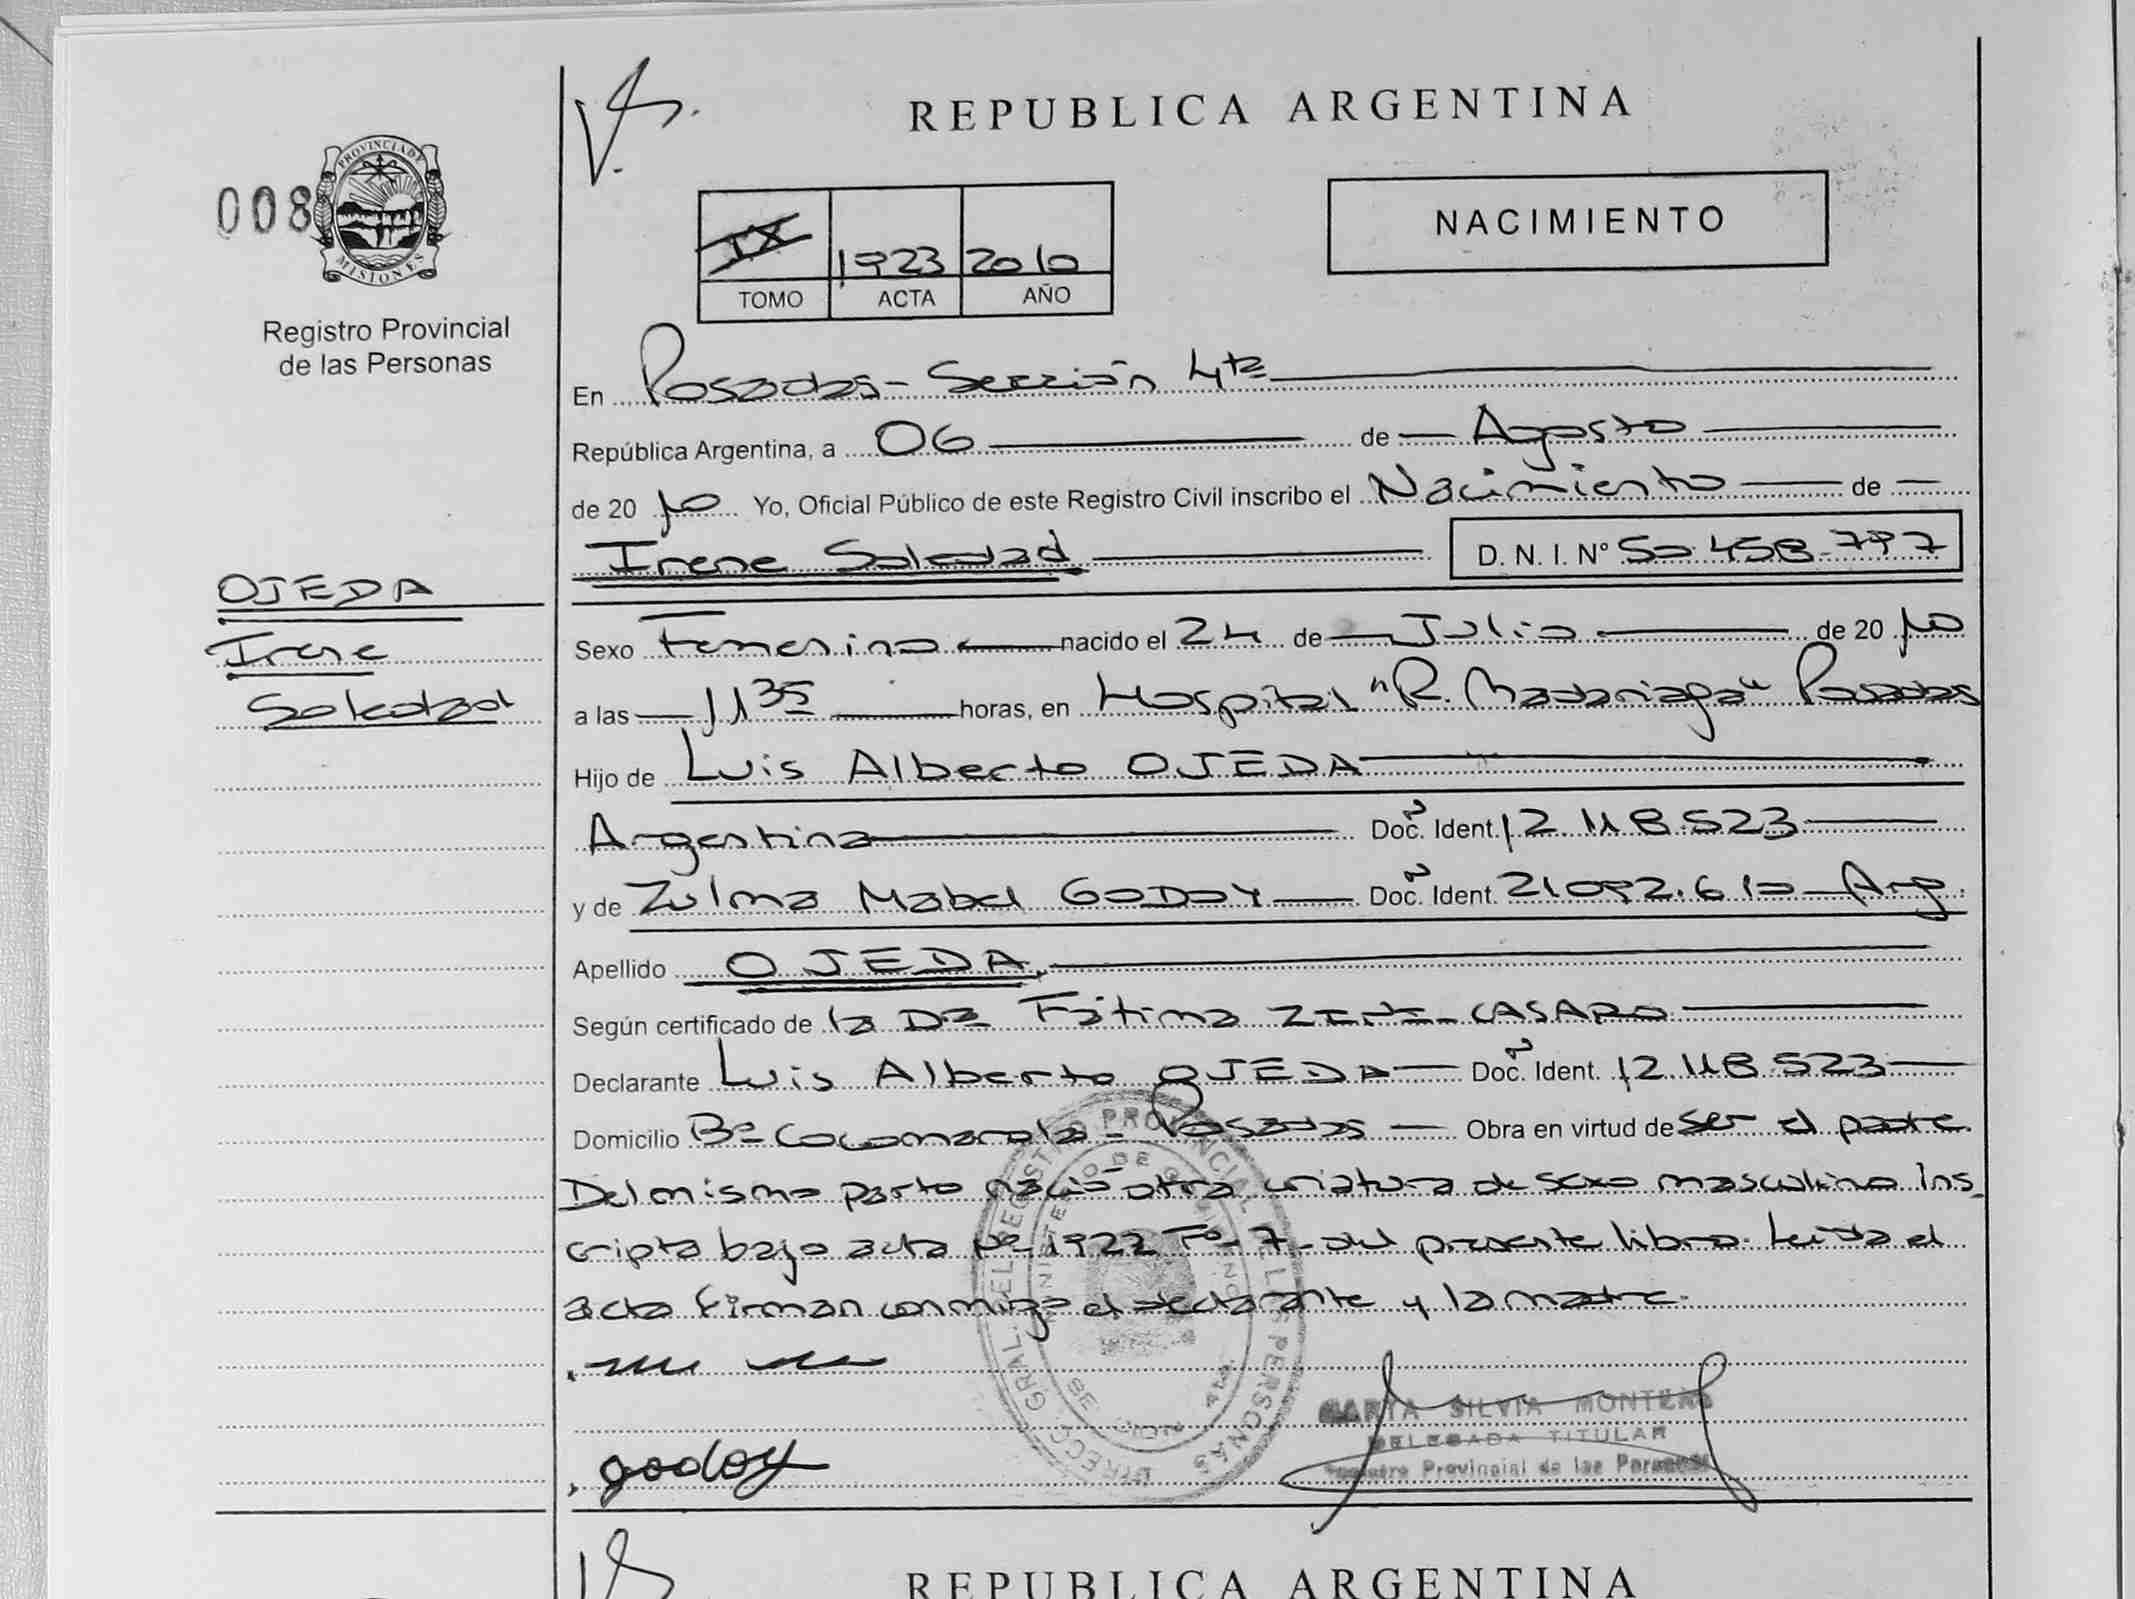 REPUBLICA ARGENTINA
008
PROVINCIA DE
MISIONES
Registro Provincial
de las Personas
IX 1923 2010
TOMO ACTA AÑO
NACIMIENTO
En Posadas - Sección 4ta
República Argentina, a 06 de Agosto
de 2010 Yo, Oficial Público de este Registro Civil inscribo el Nacimiento de
Irene Soledad D. N. I. N° 50.458.797
OJEDA
Irene
Soledad
Sexo Femenino nacido el 24 de Julio de 2010
a las 11 35 horas, en Hospital "R. Madariaga" Posadas
Hijo de Luis Alberto OJEDA
Argentina Doc. Ident. 12.118.523
y de Zulma Mabel GODOY Doc. Ident. 21.092.610 Arg.
Apellido OJEDA
Según certificado de la Dra Fátima CASARO
Declarante Luis Alberto OJEDA Doc. Ident. 12.118.523
Domicilio Bº Cocomarola - Posadas Obra en virtud de ser el padre.
Del mismo parto nació otra criatura de sexo masculino Ins
cripta bajo acta Nº 1922 Fº 7 del presente libro. Leída el
acta firman conmigo el declarante y la madre.
DIRECC. GRAL. DEL REGISTRO PROVINCIAL DE LAS PERSONAS
MINISTERIO DE GOBIERNO
MARTA SILVIA MONTERO
DELEGADA TITULAR
Registro Provincial de las Personas
godoy
REPUBLICA ARGENTINA